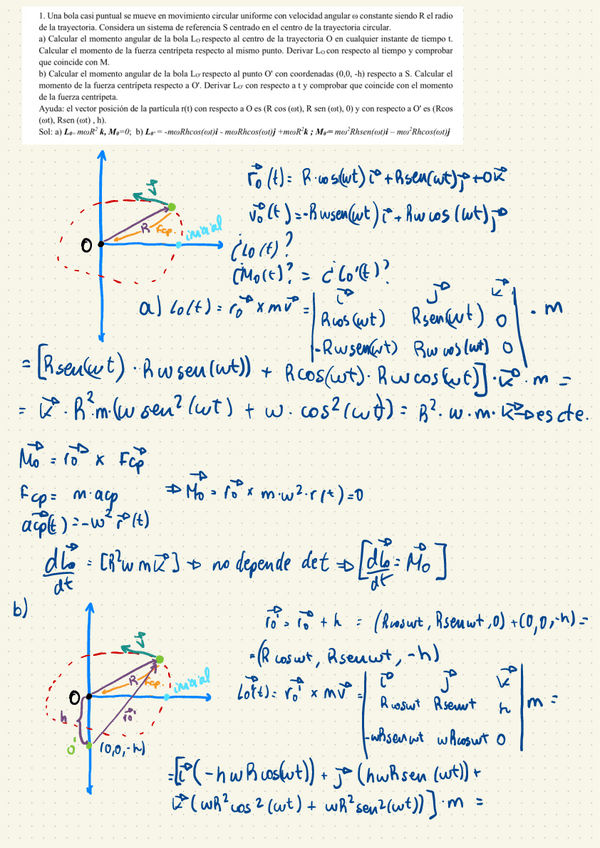 1. Una bola casi puntual se mueve en movimiento circular uniforme con velocidad angular ω constante siendo R el radio
de la trayectoria. Considera un sistema de referencia S centrado en el centro de la trayectoria circular.
a) Calcular el momento angular de la bola L_O respecto al centro de la trayectoria O en cualquier instante de tiempo t.
Calcular el momento de la fuerza centrípeta respecto al mismo punto. Derivar L_O con respecto al tiempo y comprobar
que coincide con M.
b) Calcular el momento angular de la bola L_O' respecto al punto O' con coordenadas (0,0, -h) respecto a S. Calcular el
momento de la fuerza centrípeta respecto a O'. Derivar L_O' con respecto a t y comprobar que coincide con el momento
de la fuerza centrípeta.
Ayuda: el vector posición de la partícula r(t) con respecto a O es (R cos (ωt), R sen (ωt), 0) y con respecto a O' es (Rcos
(ωt), Rsen (ωt) , h).
Sol: a) L_O= mωR² k, M_O=0; b) L_O' = -mωRhcos(ωt)i - mωRhcos(ωt)j +mωR²k ; M_O'= mω²Rhsen(ωt)i – mω²Rhcos(ωt)j
v
R
Fcp.
O
inicial
r₀(t) = R·cos(wt) i + Rsen(wt) j + 0k
v₀(t) = -Rwsen(wt) i + Rw cos(wt) j
¿L₀(t)?
¿M₀(t)? = ¿L₀'(t)?
a) L₀(t) = r₀ x mv = | i j k | · m
Rcos(wt) Rsen(wt) 0
-Rwsen(wt) Rw cos(wt) 0
= [Rsen(wt) · Rwsen(wt)) + Rcos(wt) · Rwcos(wt)] · k · m =
= k · R²m · (w sen²(wt) + w · cos²(wt)) = R² · w · m · k → es cte.
M₀ = r₀ x Fcp
Fcp = m·acp ⇒ M₀ = r₀ x m·w²·r(t) = 0
acp(t) = -w² r(t)
dL₀/dt = [R²w m k] → no depende de t ⇒ [dL₀/dt = M₀]
b)
v
R
Fcp.
O
inicial
h
r₀'
O'
(0,0,-h)
r₀' = r₀ + h = (Rcoswt, Rsenwt, 0) + (0,0,-h) =
= (R coswt, Rsenwt, -h)
L₀'(t) = r₀' x mv = | i j k | m =
Rcoswt Rsenwt h
-wRsenwt wRcoswt 0
= [i (-hwRcos(wt)) + j (hwRsen(wt)) +
k (wR²cos²(wt) + wR²sen²(wt))] · m =